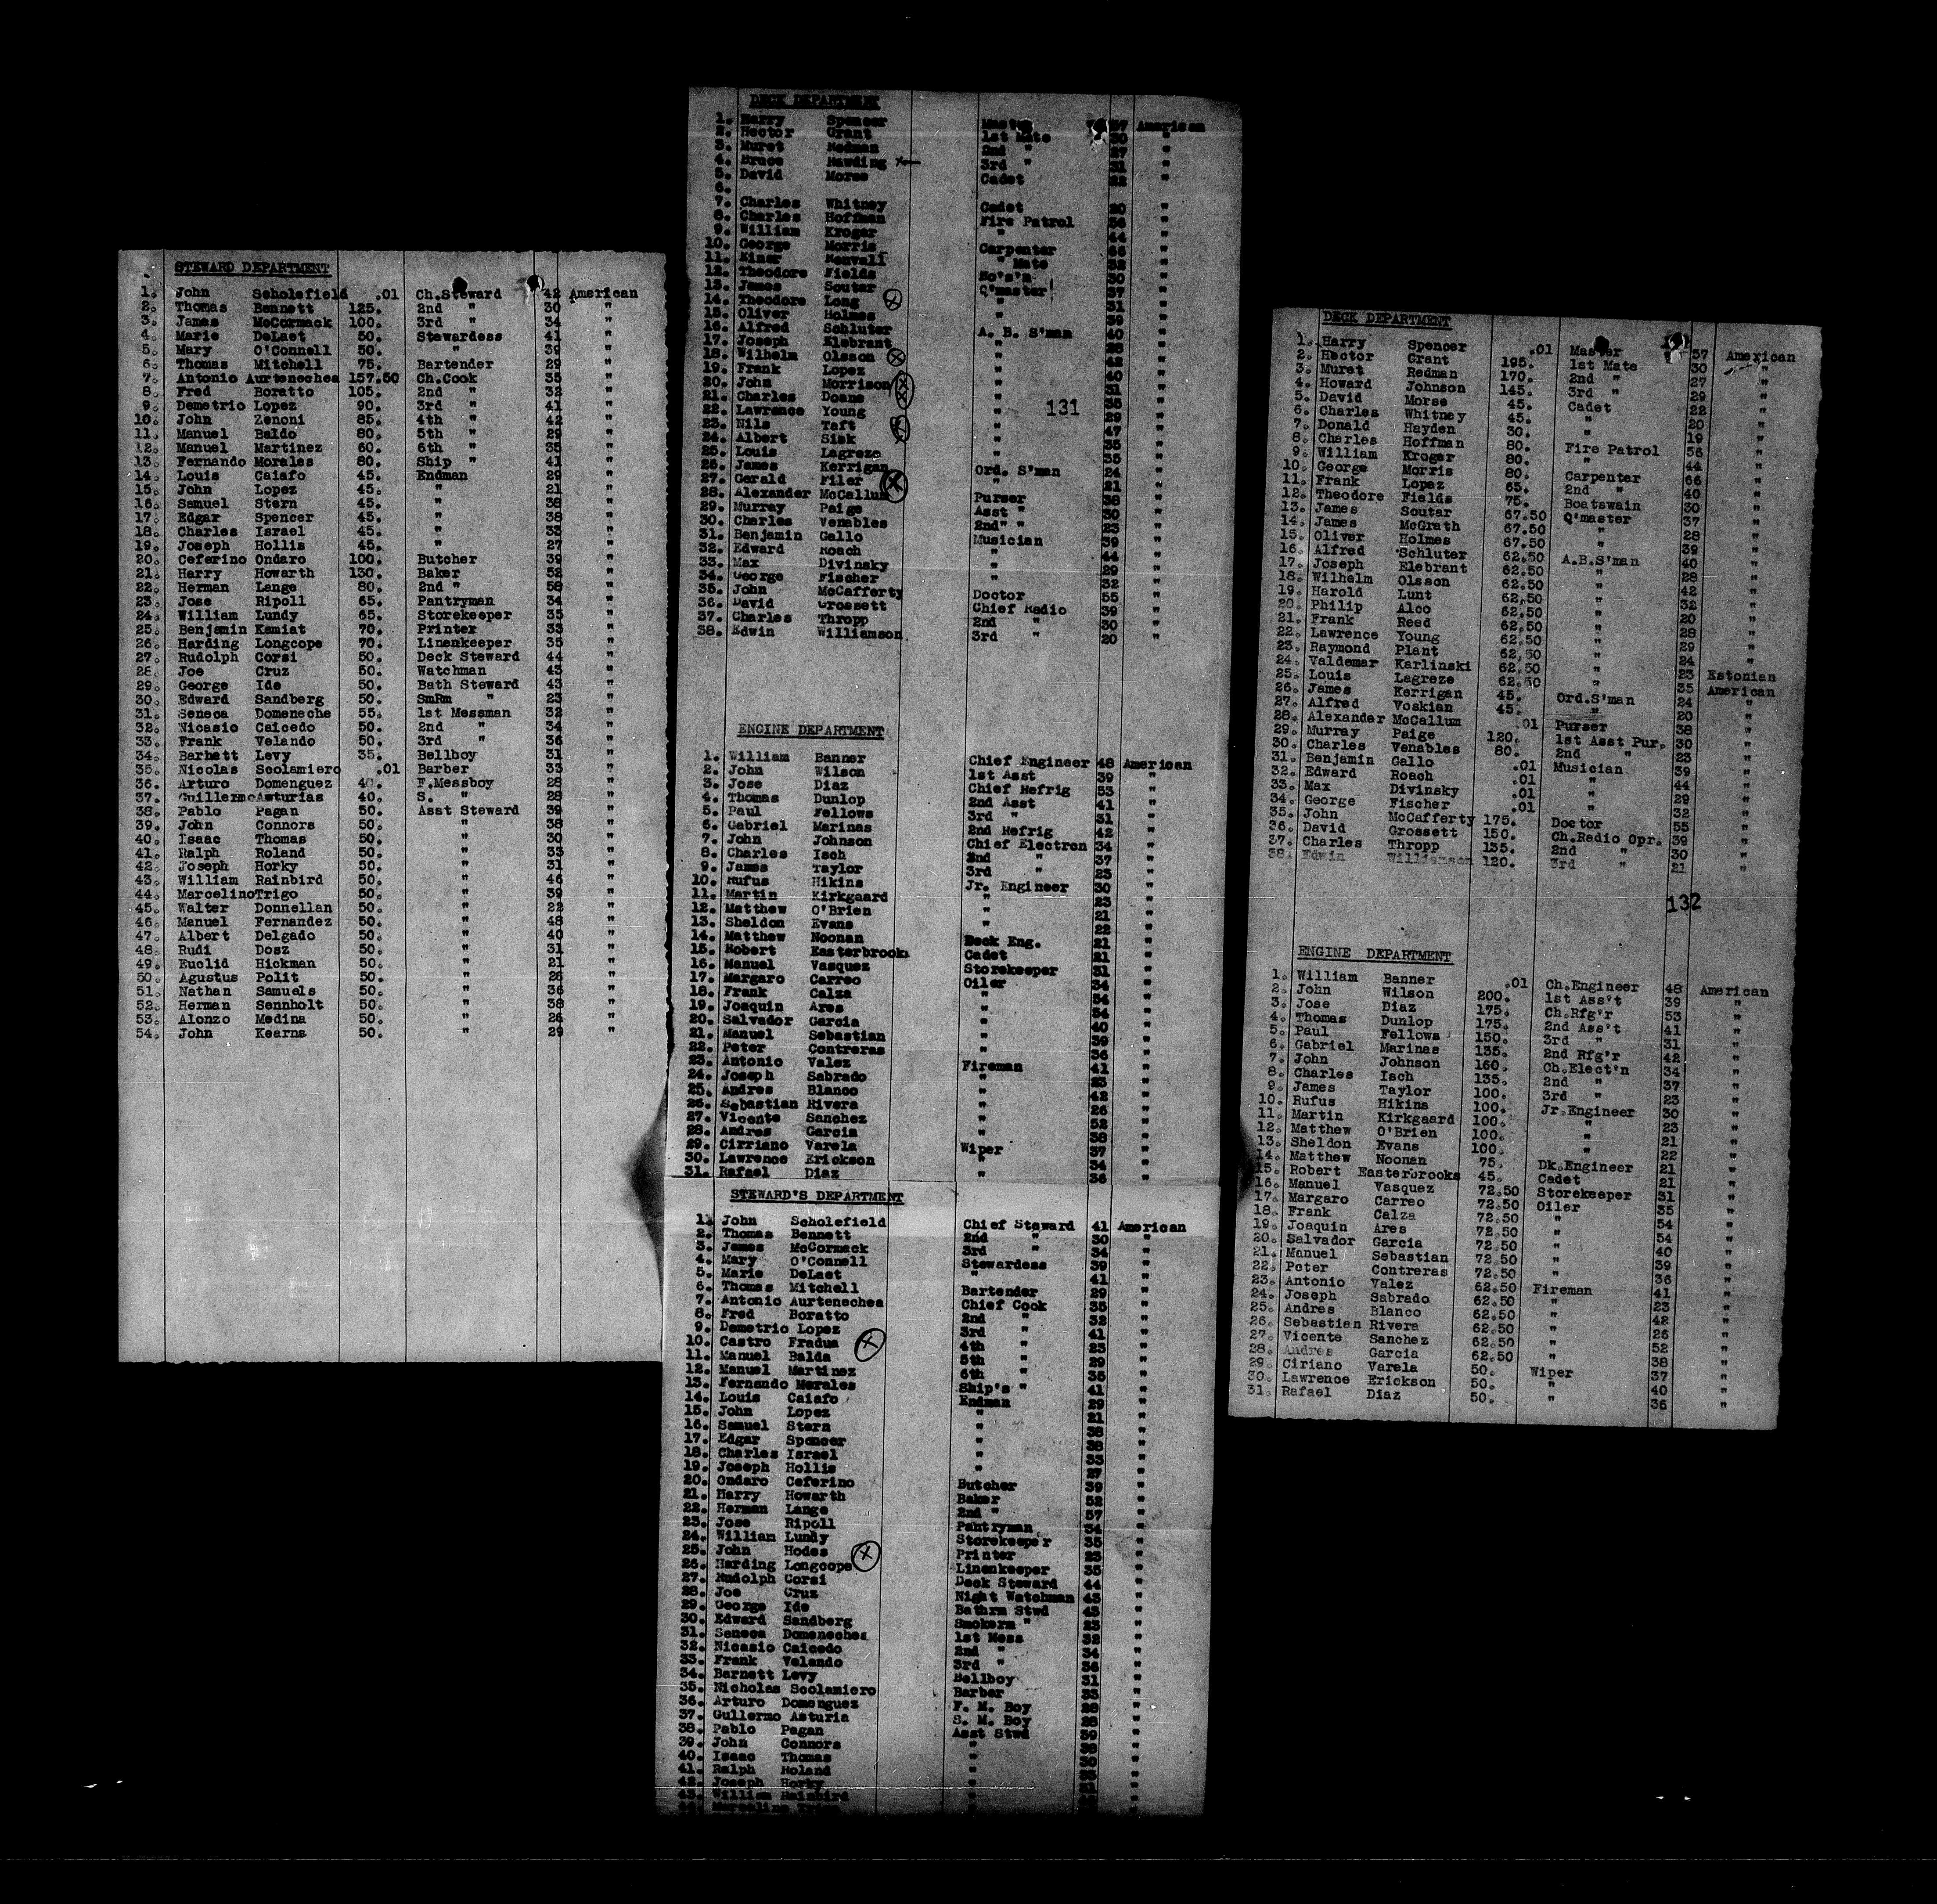 STEWARD DEPARTMENT
1. John Scholefield .01 Ch.Steward 42 American
2. Thomas Bennett 125. 2nd " 30 "
3. James McCormack 100. 3rd " 34 "
4. Marie DeLaet 50. Stewardess 41 "
5. Mary O'Connell 50. " 39 "
6. Thomas Mitchell 75. Bartender 29 "
7. Antonio Aurtenechea 157.50 Ch.Cook 35 "
8. Fred Boratto 105. 2nd " 32 "
9. Demetrio Lopez 90. 3rd " 41 "
10. John Zenoni 85. 4th " 42 "
11. Manuel Baldo 80. 5th " 29 "
12. Manuel Martinez 60. 6th " 35 "
13. Fernando Morales 80. Ship " 41 "
14. Louis Caiafo 45. Endman 29 "
15. John Lopez 45. " 21 "
16. Samuel Stern 45. " 38 "
17. Edgar Spencer 45. " 38 "
18. Charles Israel 45. " 33 "
19. Joseph Hollis 45. " 27 "
20. Ceferino Ondaro 100. Butcher 39 "
21. Harry Howarth 130. Baker 52 "
22. Herman Lange 80. 2nd " 58 "
23. Jose Ripoll 65. Pantryman 34 "
24. William Lundy 65. Storekeeper 35 "
25. Benjamin Kamiat 70. Printer 33 "
26. Harding Longcope 70. Linenkeeper 35 "
27. Rudolph Corsi 50. Deck Steward 44 "
28. Joe Cruz 50. Watchman 43 "
29. George Ide 50. Bath Steward 43 "
30. Edward Sandberg 50. SmRm " 23 "
31. Seneca Domeneche 55. 1st Messman 32 "
32. Nicasio Caicedo 50. 2nd " 34 "
33. Frank Velando 50. 3rd " 36 "
34. Barnett Levy 35. Bellboy 31 "
35. Nicolas Scolamiero .01 Barber 33 "
36. Arturo Domenguez 40. F.Messboy 28 "
37. Guillermo Asturias 40. S. " 28 "
38. Pablo Pagan 50. Asst Steward 39 "
39. John Connors 50. " 38 "
40. Isaac Thomas 50. " 30 "
41. Ralph Roland 50. " 33 "
42. Joseph Horky 50. " 31 "
43. William Rainbird 50. " 46 "
44. Marcelino Trigo 50. " 39 "
45. Walter Donnellan 50. " 22 "
46. Manuel Fernandez 50. " 48 "
47. Albert Delgado 50. " 40 "
48. Rudi Dosz 50. " 31 "
49. Euclid Hickman 50. " 21 "
50. Agustus Polit 50. " 26 "
51. Nathan Samuels 50. " 36 "
52. Herman Sennholt 50. " 38 "
53. Alonzo Medina 50. " 26 "
54. John Kearns 50. " 29 "
DECK DEPARTMENT
1. Harry Spencer Master 57 American
2. Hector Grant 1st Mate 30 "
3. Muret Redman 2nd " 27 "
4. Bruce Hawding 3rd " 31 "
5. David Morse Cadet 22 "
6.
7. Charles Whitney Cadet 20 "
8. Charles Hoffman Fire Patrol 56 "
9. William Kroger " 44 "
10. George Morris Carpenter 66 "
11. Einar " Mate 32 "
12. Theodore Fields Bo's'n 30 "
13. James Soutar Q'master 37 "
14. Theodore Long " 31 "
15. Oliver Holmes " 39 "
16. Alfred Schluter A. B. S'man 40 "
17. Joseph Elebrant " 28 "
18. Wilhelm Olsson " 42 "
19. Frank Lopez " 40 "
20. John Morrison " 31 "
21. Charles Doane " 35 "
131
22. Lawrence Young " 29 "
23. Nils Taft " 47 "
24. Albert Sisk " 35 "
25. Louis Lagreze " 35 "
26. James Kerrigan Ord. S'man 24 "
27. Gerald Filer " 21 "
28. Alexander McCallum Purser 38 "
29. Murray Paige Asst " 30 "
30. Charles Venables 2nd" " 23 "
31. Benjamin Gallo Musician 39 "
32. Edward Roach " 44 "
33. Max Divinsky " 29 "
34. George Fischer " 32 "
35. John McCafferty Doctor 55 "
36. David Grossett Chief Radio 39 "
37. Charles Thropp 2nd " 30 "
38. Edwin Williamson 3rd " 20 "
ENGINE DEPARTMENT
1. William Banner Chief Engineer 48 American
2. John Wilson 1st Asst 39 "
3. Jose Diaz Chief Refrig 53 "
4. Thomas Dunlop 2nd Asst 41 "
5. Paul Fellows 3rd " 31 "
6. Gabriel Marinas 2nd Refrig 42 "
7. John Johnson Chief Electron 34 "
8. Charles Isch 2nd " 37 "
9. James Taylor 3rd " 23 "
10. Rufus Hikins Jr. Engineer 30 "
11. Martin Kirkgaard " 23 "
12. Matthew O'Brien " 21 "
13. Sheldon Evans " 22 "
14. Matthew Noonan Deck Eng. 21 "
15. Robert Easterbrooks Cadet 21 "
16. Manuel Vasquez Storekeeper 31 "
17. Margaro Carreo Oiler 34 "
18. Frank Calza " 54 "
19. Joaquin Ares " 54 "
20. Salvador Garcia " 40 "
21. Manuel Sebastian " 39 "
22. Peter Contreras " 36 "
23. Antonio Valez Fireman 41 "
24. Joseph Sabrado " 23 "
25. Andres Blanco " 42 "
26. Sebastian Rivera " 26 "
27. Vicente Sanchez " 52 "
28. Andres Garcia " 38 "
29. Cirriano Varela Wiper 37 "
30. Lawrence Erickson " 34 "
31. Rafael Diaz " 36 "
STEWARD'S DEPARTMENT
1. John Scholefield Chief Steward 41 American
2. Thomas Bennett 2nd " 30 "
3. James McCormack 3rd " 34 "
4. Mary O'Connell Stewardess 39 "
5. Marie DeLaet " 41 "
6. Thomas Mitchell Bartender 29 "
7. Antonio Aurtenechea Chief Cook 35 "
8. Fred Boratto 2nd " 32 "
9. Demetrio Lopez 3rd " 41 "
10. Castro Fradua 4th " 23 "
11. Manuel Balda 5th " 29 "
12. Manuel Martinez 6th " 35 "
13. Fernando Morales Ship's " 41 "
14. Louis Caiafo Endman 29 "
15. John Lopez " 21 "
16. Samuel Stern " 38 "
17. Edgar Spencer " 38 "
18. Charles Israel " 33 "
19. Joseph Hollis " 27 "
20. Ondaro Ceferino Butcher 39 "
21. Harry Howarth Baker 52 "
22. Herman Lange 2nd " 57 "
23. Jose Ripoll Pantryman 34 "
24. William Lundy Storekeeper 35 "
25. John Hodes Printer 23 "
26. Harding Longcope Linenkeeper 35 "
27. Rudolph Corsi Deck Steward 44 "
28. Joe Cruz Night Watchman 43 "
29. George Ide Bathrm Stwd 43 "
30. Edward Sandberg Smokerm " 23 "
31. Seneca Domenechea 1st Mess 32 "
32. Nicasio Caicedo 2nd " 34 "
33. Frank Velando 3rd " 36 "
34. Barnett Levy Bellboy 31 "
35. Nicholas Scolamiero Barber 33 "
36. Arturo Domenguez F. M. Boy 28 "
37. Gullermo Asturia S. M. Boy 28 "
38. Pablo Pagan Asst Stwd 39 "
39. John Connors " 38 "
40. Isaac Thomas " 30 "
41. Ralph Roland " 33 "
42. Joseph Horky " 31 "
43. William Rainbird "
DECK DEPARTMENT
1. Harry Spencer .01 Master 57 American
2. Hector Grant 195. 1st Mate 30 "
3. Muret Redman 170. 2nd " 27 "
4. Howard Johnson 145. 3rd " 29 "
5. David Morse 45. Cadet 22 "
6. Charles Whitney 45. " 20 "
7. Donald Hayden 30. " 19 "
8. Charles Hoffman 80. Fire Patrol 56 "
9. William Kroger 80. " 44 "
10. George Morris 80. Carpenter 66 "
11. Frank Lopez 65. 2nd " 40 "
12. Theodore Fields 75. Boatswain 30 "
13. James Soutar 67.50 Q'master 37 "
14. James McGrath 67.50 " 28 "
15. Oliver Holmes 67.50 " 39 "
16. Alfred Schluter 62.50 A.B.S'man 40 "
17. Joseph Elebrant 62.50 " 28 "
18. Wilhelm Olsson 62.50 " 42 "
19. Harold Lunt 62.50 " 32 "
20. Philip Alco 62.50 " 20 "
21. Frank Reed 62.50 " 28 "
22. Lawrence Young 62.50 " 29 "
23. Raymond Plant 62.50 " 24 "
24. Valdemar Karlinski 62.50 " 23 Estonian
25. Louis Lagreze 62.50 " 35 American
26. James Kerrigan 45. Ord.S'man 24 "
27. Alfred Voskian 45. " 20 "
28. Alexander McCallum .01 Purser 38 "
29. Murray Paige 120. 1st Asst Pur. 30 "
30. Charles Venables 80. 2nd " 23 "
31. Benjamin Gallo .01 Musician 39 "
32. Edward Roach .01 " 44 "
33. Max Divinsky .01 " 29 "
34. George Fischer .01 " 32 "
35. John McCafferty 175. Doctor 55 "
36. David Grossett 150. Ch.Radio Opr. 39 "
37. Charles Thropp 135. 2nd " 30 "
38. Edwin Williamson 120. 3rd " 21 "
132
ENGINE DEPARTMENT
1. William Banner .01 Ch.Engineer 48 American
2. John Wilson 200. 1st Ass't 39 "
3. Jose Diaz 175. Ch.Rfg'r 53 "
4. Thomas Dunlop 175. 2nd Ass't 41 "
5. Paul Fellows 150. 3rd " 31 "
6. Gabriel Marinas 135. 2nd Rfg'r 42 "
7. John Johnson 160. Ch.Elect'n 34 "
8. Charles Isch 135. 2nd " 37 "
9. James Taylor 100. 3rd " 23 "
10. Rufus Hikins 100. Jr.Engineer 30 "
11. Martin Kirkgaard 100. " 23 "
12. Matthew O'Brien 100. " 21 "
13. Sheldon Evans 100. " 22 "
14. Matthew Noonan 75. Dk.Engineer 21 "
15. Robert Easterbrooks 45. Cadet 21 "
16. Manuel Vasquez 72.50 Storekeeper 31 "
17. Margaro Carreo 72.50 Oiler 35 "
18. Frank Calza 72.50 " 54 "
19. Joaquin Ares 72.50 " 54 "
20. Salvador Garcia 72.50 " 40 "
21. Manuel Sebastian 72.50 " 39 "
22. Peter Contreras 72.50 " 36 "
23. Antonio Valez 62.50 Fireman 41 "
24. Joseph Sabrado 62.50 " 23 "
25. Andres Blanco 62.50 " 42 "
26. Sebastian Rivera 62.50 " 26 "
27. Vicente Sanchez 62.50 " 52 "
28. Andres Garcia 62.50 " 38 "
29. Ciriano Varela 50. Wiper 37 "
30. Lawrence Erickson 50. " 40 "
31. Rafael Diaz 50. " 36 "